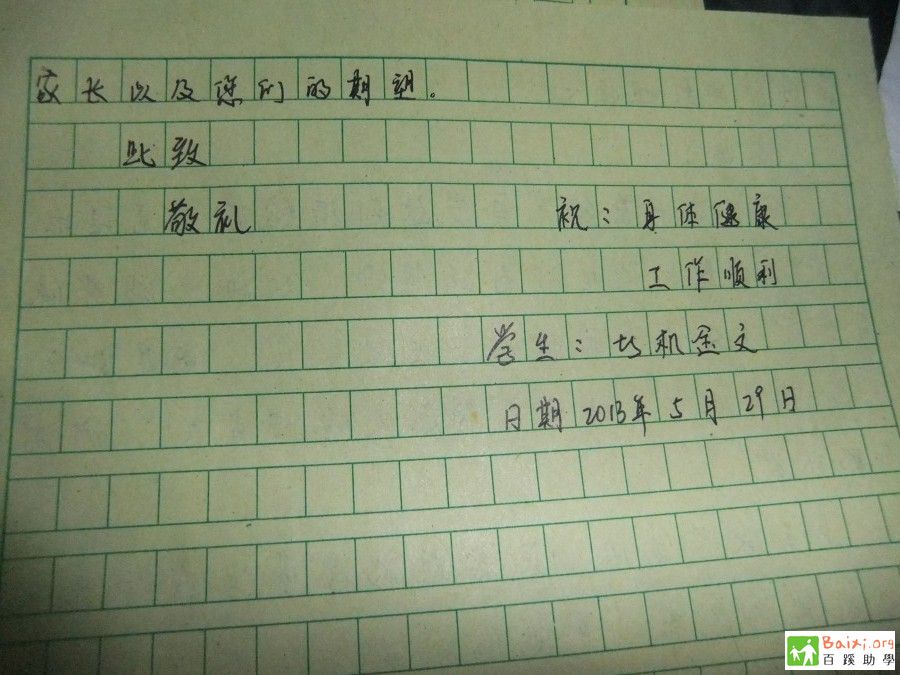 家长以及您们的期望。
此致
敬礼 祝：身体健康
工作顺利
学生：机金文
日期2013年5月29日
Baixi.org
百蹊助學